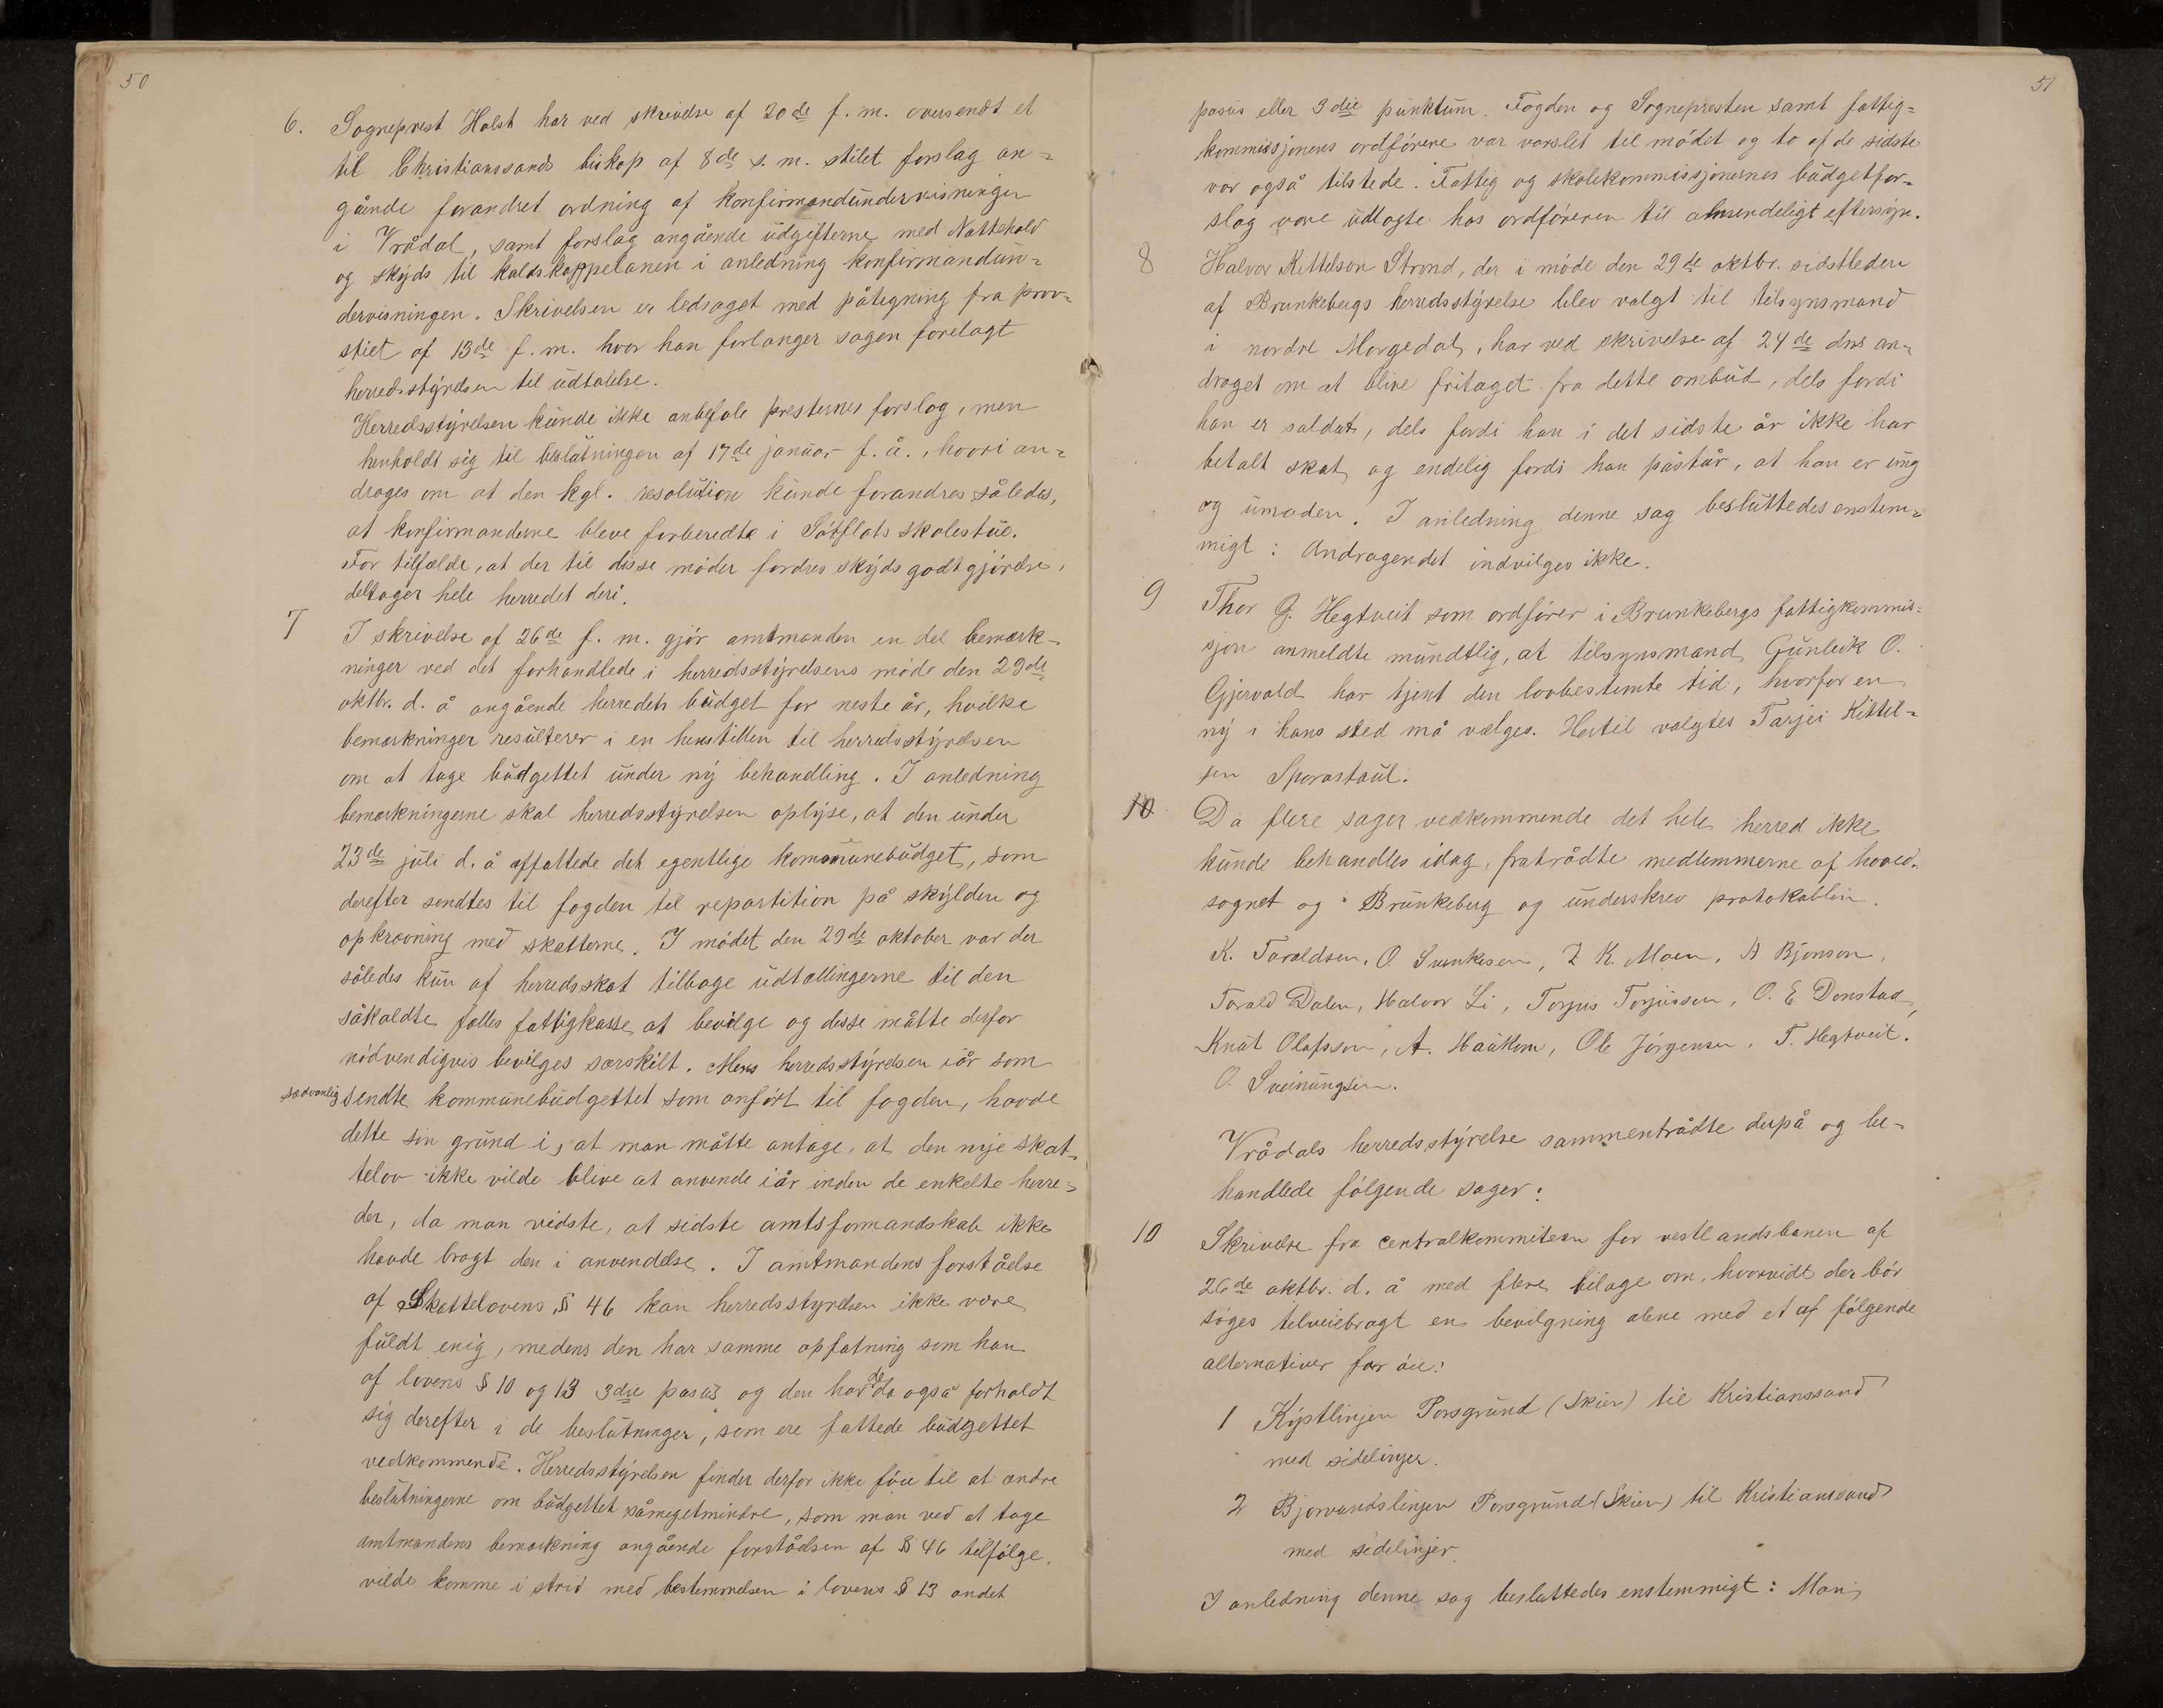 50
6. Sogneprest Holst har ved skrivelse af 20de f. m. oversendt et
til Christianssands biskop af 8de s. m. stilet forslag an=
gående forandret ordning af konfirmandundervisningen
i Vrådal, samt forslag angående udgifterne med Nattehold
og skyds til kaldskappelanen i anledning konfirmandun=
dervisningen. Skrivelsen er ledsaget med påtegning fra prov=
stiet af 13de f. m. hvor han forlanger sagen forelagt
herredsstyrelsen til udtalelse.
Herredsstyrelsen kunde ikke anbefale presternes forslag, men
henholdt sig til beslutningen af 17de januar f. å., hvori an=
drages om at den kgl. resolution kunde forandres således,
at konfirmanderne bleve forberedte i Såtflots skolestue.
For tilfælde, at der til disse møder fordres skyds godtgjørelse,
deltager hele herredet deri.
7 I skrivelse af 26de f. m. gjør amtmanden en del bemærk=
ninger ved det forhandlede i herredsstyrelsens møde den 29de
oktbr. d. å angående herredets budget for neste år, hvilke
bemærkninger resulterer i en henstillen til herredsstyrelsen
om at tage budgettet under ny behandling. I anledning
bemærkningerne skal herredsstyrelsen oplyse, at den under
23de juli d. å affattede det egentlige kommunebudget, som
derefter sendtes til fogden til repartition på skylden og
opkrævning med skatterne. I mødet den 29de oktober var der
således kun af herredsskat tilbage udtællingerne til den
såkaldte fælles fattigkasse at bevilge og disse måtte derfor
nødvendigvis bevilges særskilt. Mens herredsstyrelsen iår som
sædvanlig sendte kommunebudgettet som anført til fogden, havde
dette sin grund i, at man måtte antage, at den nye skat=
telov ikke vilde blive at anvende iår inden de enkelte herre=
der, da man vidste, at sidste amtsformandskab ikke
havde bragt den i anvendelse. I amtmandens forståelse
af Skattelovens § 46 kan herredsstyrelsen ikke være
fuldt enig, medens den har samme opfatning som han
af lovens § 10 og 13 3die pasus og den har da også forholdt
sig derefter i de beslutninger, som ere fattede budgettet
vedkommende. Herredsstyrelsen finder derfor ikke føie til at ændre
beslutningerne om budgettet såmegetmindre, som man ved at tage
amtmandens bemærkning angående forståelsen af § 46 tilfølge,
vilde komme i strid med bestemmelsen i lovens § 13 andet
51
pasus eller 3die punktum. Fogden og Sognepresten samt fattig=
kommissjonens ordførere var varslet til mødet og to af de sidste
var også tilstede. Fattig og skolekommissjonernes budgetfor=
slag være udlagte hos ordføreren til almindeligt eftersyn.
8 Halvor Kittelson Strond, der i møde den 29de oktbr. sidstleden
af Brunkebergs herredsstyrelse blev valgt til tilsynsmand
i nordre Morgedal, har ved skrivelse af 24de dns an=
draget om at blive fritaget fra dette ombud, dels fordi
han er soldat, dels fordi han i det sidste år ikke har
betalt skat og endelig fordi han påstår, at han er ung
og umoden. I anledning denne sag besluttedes enstem=
migt: Andragendet indvilges ikke.
9 Thor G. Hegtveit som ordfører i Brunkebergs fattigkommis=
sjon anmeldte mundtlig, at tilsynsmand Gunleik O.
Gjervald har tjent den lovbestemte tid, hvorfor en
ny i hans sted må vælges. Hertil valgtes Tarjei Kittel=
sen Sporastaul.
10 Da flere sager vedkommende det hele herred ikke
kunde behandles idag, fratrådte medlemmerne af hoved=
sognet og Brunkeberg og underskrev protokollen.
K. Taraldsen. O. Svenkesen, Z K. Moen, A Bjonson,
Tarald Dalen, Halvor Li, Torjus Torjussen, O. E. Donstad,
Knut Olafsson, A. Haukom, Ole Jørgensen, T. Hegtveit.
O. Sveinungsen.
Vrådals herredsstyrelse sammentrådte derpå og be=
handlede følgende sager:
10 Skrivelse fra centralkommiteen for vestlandsbanen af
26de oktbr. d. å med flere bilage om, hvorvidt der bør
søges tilveiebragt en bevilgning alene med et af følgende
alternativer for øie:
1 Kystlinjen Porsgrund (Skien) til Kristianssand
med sidelinjer.
2 Bjorvandslinjen Porsgrund (Skien) til Kristianssand
med sidelinjer.
I anledning denne sag besluttedes enstemmigt: Man